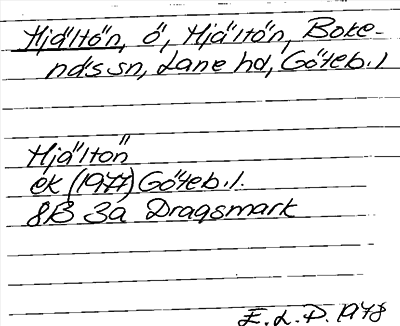 Hjältön, ö, Hjältön, Boke-
näs sn, Lane hd, Göteb. l
Hjältön
ek (1977) Göteb. l.
8B 3a Dragsmark
E. L. P. 1978